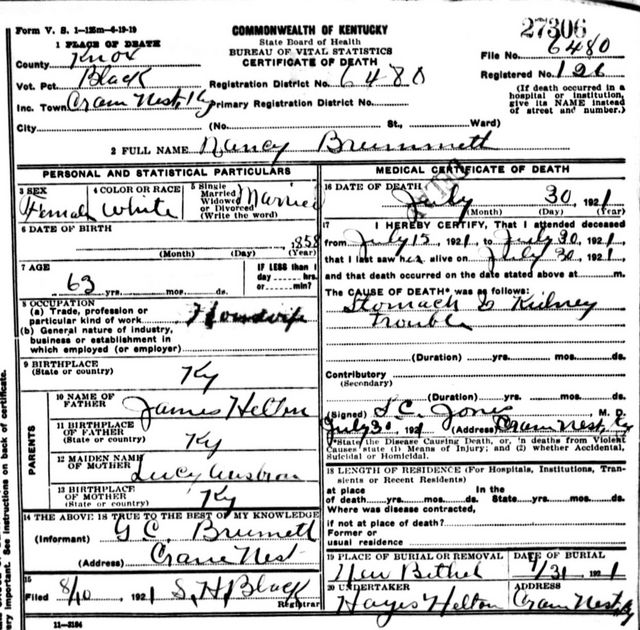 Form V. S. 1—12 5m—4-19-19
COMMONWEALTH OF KENTUCKY
State Board of Health
BUREAU OF VITAL STATISTICS
CERTIFICATE OF DEATH
27306
File No. 6480
Registered No. 126
(If death occurred in a hospital or institution, give its NAME instead of street and number.)
1 PLACE OF DEATH
County Knox
Vot. Pct. Black
Registration District No. 6480
Inc. Town Crain Nest, Ky Primary Registration District No.
City (No. St., Ward)
2 FULL NAME Nancy Brummett
PERSONAL AND STATISTICAL PARTICULARS
3 SEX Female
4 COLOR OR RACE White
5 Single Married Widowed or Divorced (Write the word) Married
6 DATE OF BIRTH 1858
(Month) (Day) (Year)
7 AGE 63 yrs. mos. ds.
IF LESS than 1 day hrs. or min.?
8 OCCUPATION
(a) Trade, profession or particular kind of work Housewife
(b) General nature of industry, business or establishment in which employed (or employer)
9 BIRTHPLACE (State or country) Ky
PARENTS
10 NAME OF FATHER James Helton
11 BIRTHPLACE OF FATHER (State or country) Ky
12 MAIDEN NAME OF MOTHER Lucy
13 BIRTHPLACE OF MOTHER (State or country) Ky
14 THE ABOVE IS TRUE TO THE BEST OF MY KNOWLEDGE
(Informant) G. C. Brumett
(Address) Crane Nest
15
Filed 8/10 1921 S. H. Black
Registrar
11—3184
MEDICAL CERTIFICATE OF DEATH
16 DATE OF DEATH July 30 1921
(Month) (Day) (Year)
17 I HEREBY CERTIFY, That I attended deceased
from July 15, 1921, to July 30, 1921,
that I last saw her alive on July 30 1921
and that death occurred on the date stated above at m.
The CAUSE OF DEATH* was as follows:
Stomach & Kidney
Trouble
(Duration) yrs. mos. ds.
Contributory
(Secondary)
(Duration) yrs. mos. ds.
(Signed) S. C. Jones, M. D.
July 30 1921 (Address) Crain Nest, Ky
*State the Disease Causing Death, or, 'n deaths from Violent
Causes state (1) Means of Injury; and (2) whether Accidental,
Suicidal or Homicidal.
18 LENGTH OF RESIDENCE (For Hospitals, Institutions, Transients or Recent Residents)
at place of death yrs. mos. ds. In the State yrs. mos. ds.
Where was disease contracted,
if not at place of death?
Former or
usual residence
19 PLACE OF BURIAL OR REMOVAL New Bethel
DATE OF BURIAL 7/31 1921
20 UNDERTAKER Hayes Helton
ADDRESS Crain Nest, Ky
ery important. See instructions on back of certificate.